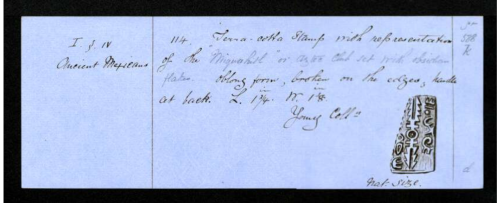 I. g. IV
Ancient Mexicans
114. Terra-cotta Stamp with representation
of the or Club set with
flakes. Oblong form, broken on the edges, handle
at back. L. 1¾. W. 1⅛.
Young Collⁿ
Nat. Size.